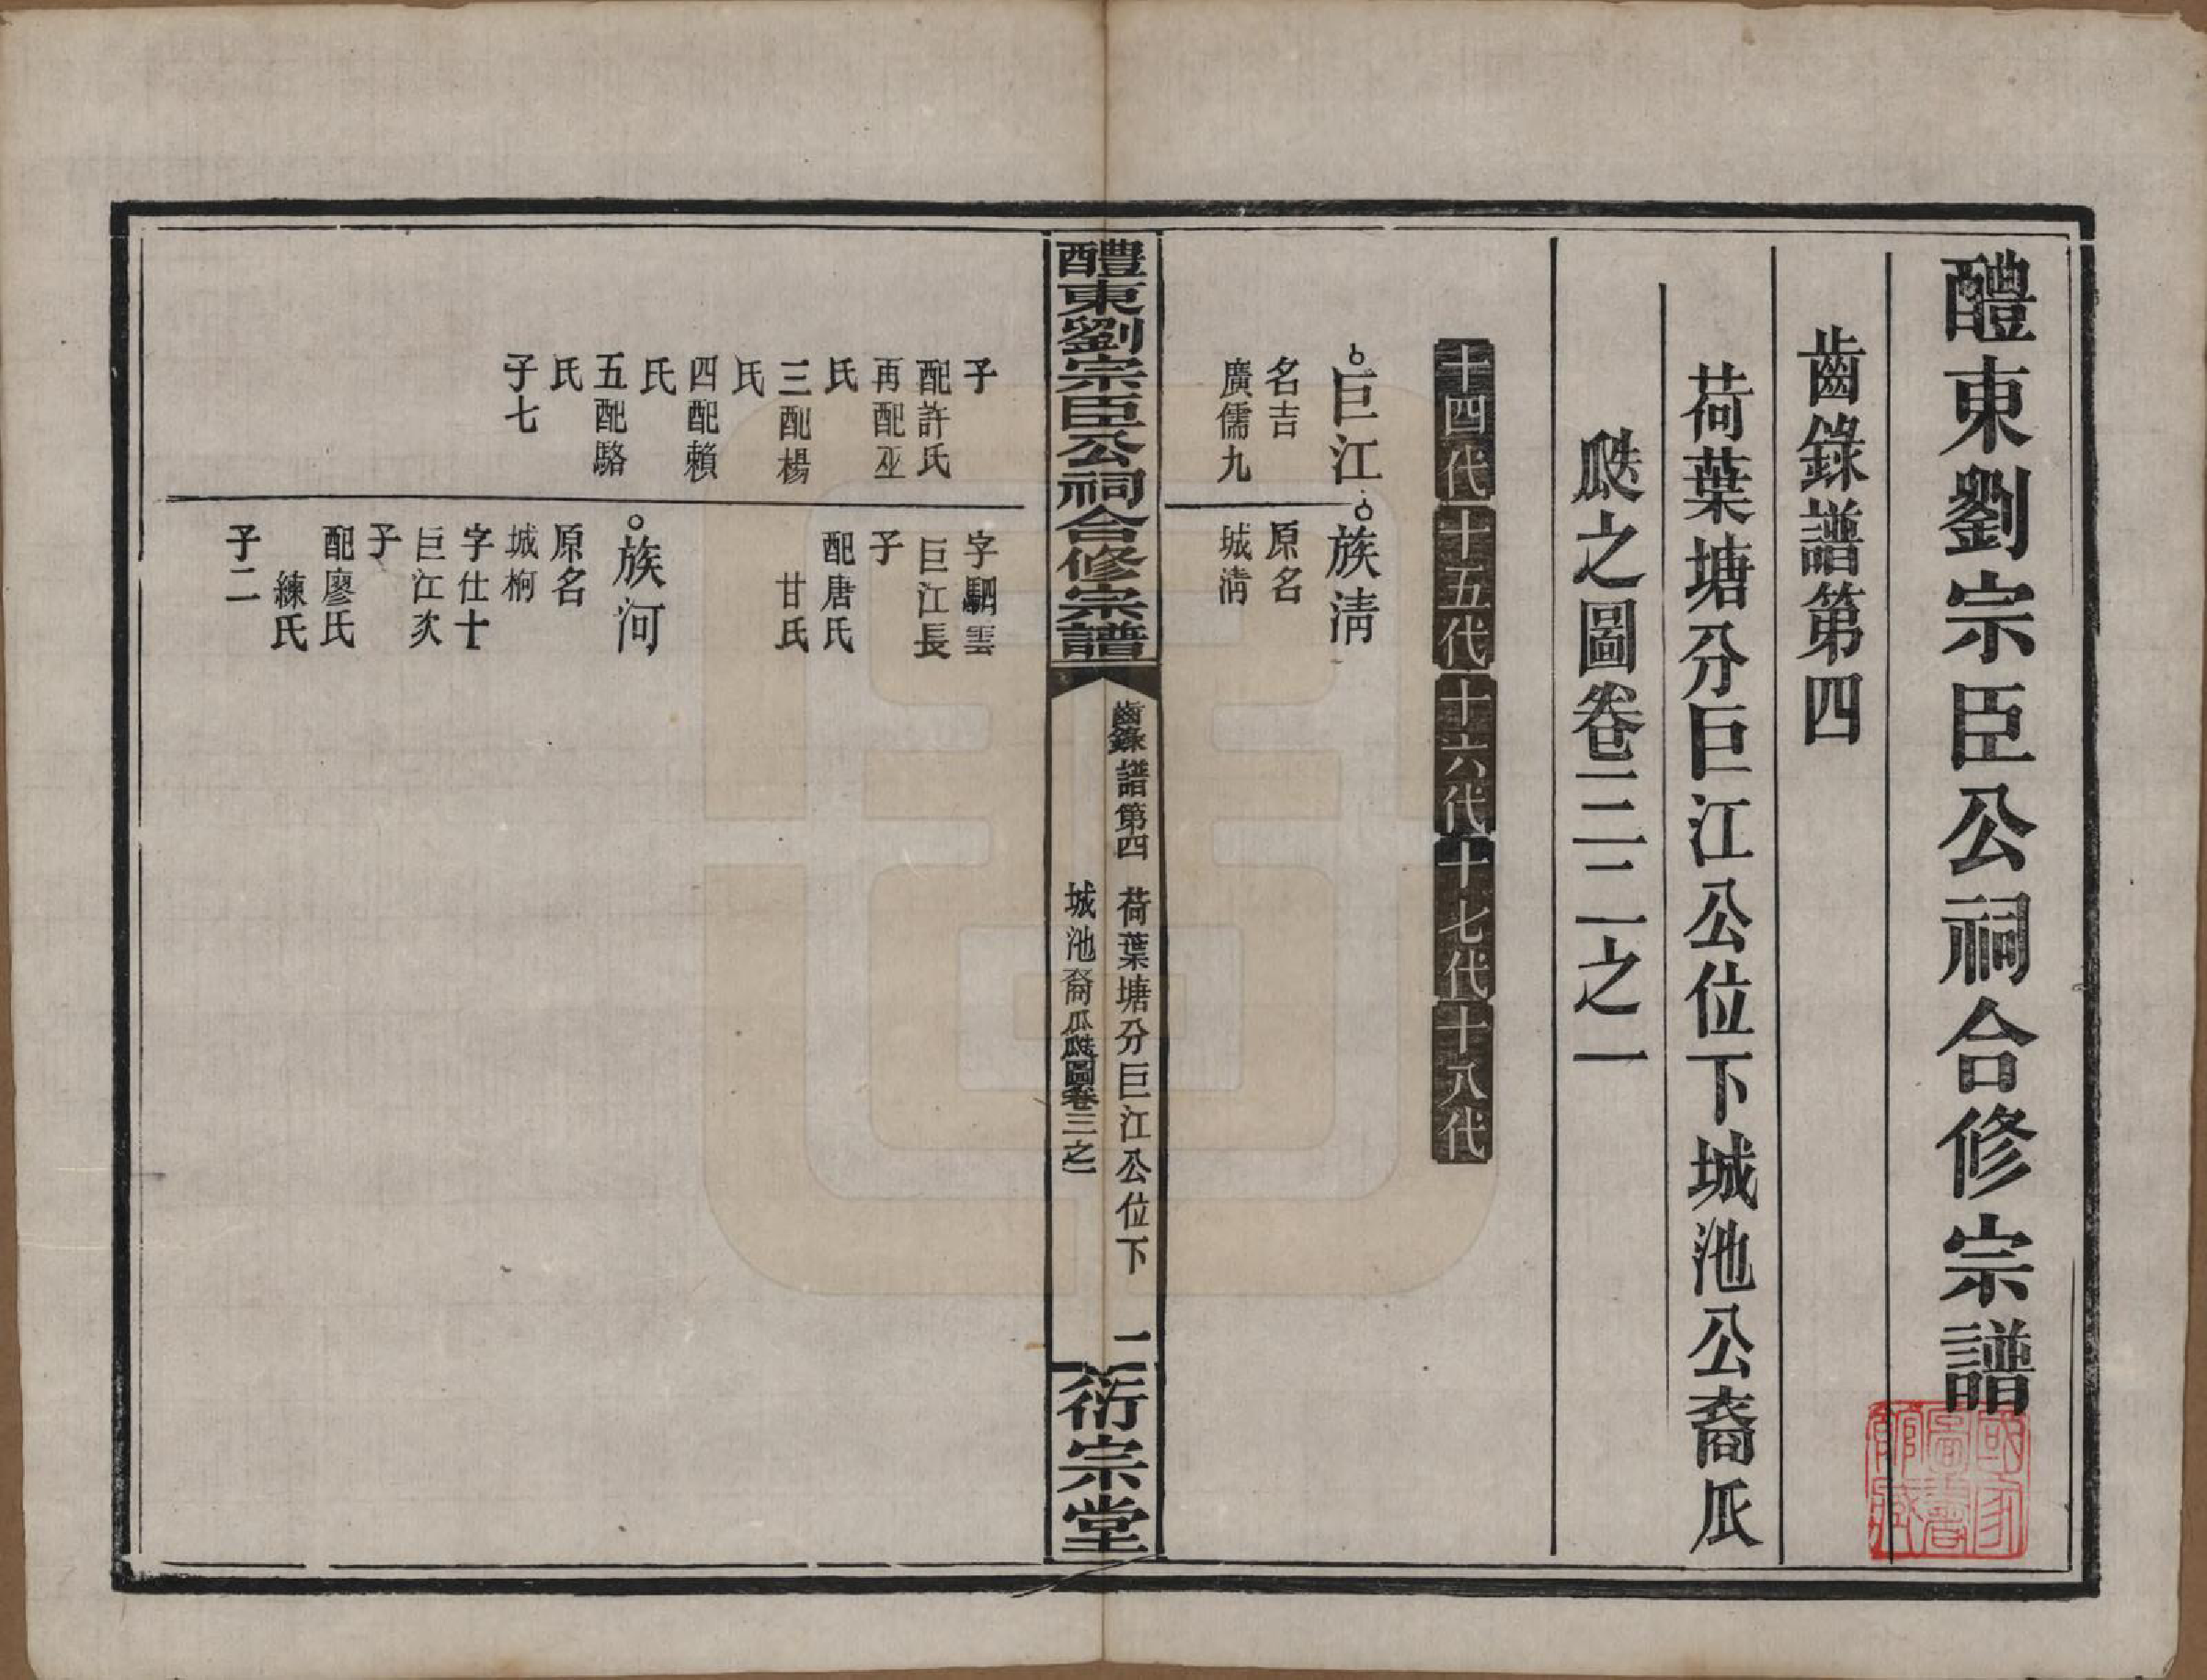 醴東劉宗臣公祠合修宗譜
齒錄譜第四
荷葉塘分巨江公位下城池公裔瓜
瓞之圖卷三二二之一
十四代
十五代
十六代
十七代
十八代
巨江
名吉
廣儒九
族淸
原名
城淸
醴東劉宗臣公祠合修宗譜
齒錄譜第四
荷葉塘分巨江公位下
城池裔瓜瓞圖卷三之一
一
衍宗堂
子
配許氏
再配巫
氏
三配楊
氏
四配賴
氏
五配駱
氏
子七
字駟雲
巨江長
子
配唐氏
甘氏
族河
原名
城柯
字仕十
巨江次
子
配廖氏
練氏
子二
國家
圖書
館藏